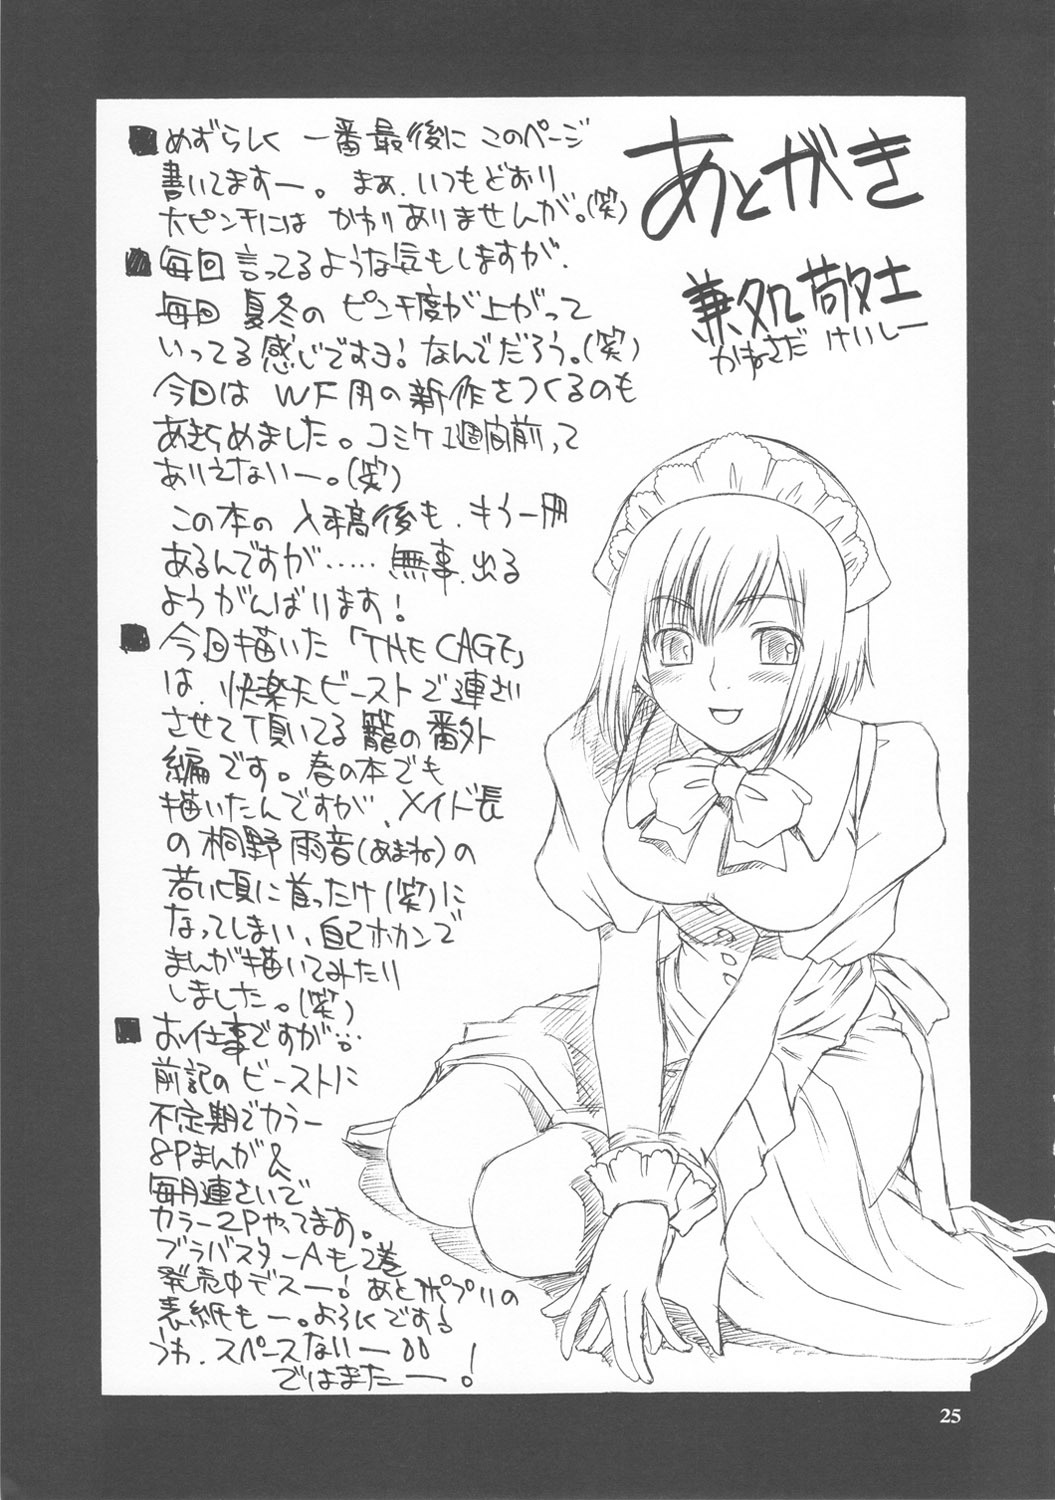 あとがき
兼処敬士
かねさだ けいしー
■めずらしく 一番最後に このページ
書いてますー。まぁ、いつもどおり
大ピンチには かわりありませんが。(笑)
■毎回 言ってるような気もしますが、
毎回 夏冬の ピンチ度が上がって
いってる感じですヨ! なんでだろう。(笑)
今回は WF用の新作をつくるのも
あきらめました。コミケ1週間前って
ありえないー。(笑)
この本の 入稿後も、もう一冊
あるんですが…… 無事、出る
ようがんばります!
■今回描いた 「THE CAGE」
は、快楽天ビーストで連さい
させて頂いてる 籠の番外
編です。春の本でも
描いたんですが、メイド長
の 桐野 雨音(あまね)の
若い頃に首ったけ(笑)に
なってしまい、自己ホカンで
まんが描いてみたり
しました。(笑)
■お仕事ですが…
前記の ビーストに
不定期でカラー
8Pまんが&
毎月連さいで
カラー2Pやってます。
ブラバスターAも2巻
発売中デスー! あとポプリの
表紙もー。よろしくです
うわ、スペースないー
ではまたー!
25